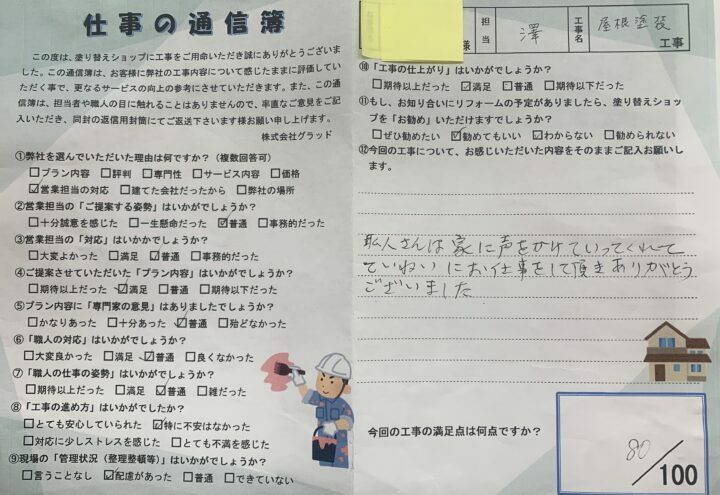 仕事の通信簿
この度は、塗り替えショップに工事をご用命いただき誠にありがとうございま
した。この通信簿は、お客様に弊社の工事内容について感じたままに評価してい
ただく事で、更なるサービスの向上の参考にさせていただきます。また、この通
信簿は、担当者や職人の目に触れることはありませんので、率直なご意見をご記
入いただき、同封の返信用封筒にてご返送下さいます様お願い申し上げます。
株式会社グラッド
①弊社を選んでいただいた理由は何ですか？（複数回答可）
□プラン内容 □評判 □専門性 □サービス内容 □価格
☑営業担当の対応 □建てた会社だったから □弊社の場所
②営業担当の「ご提案する姿勢」はいかがでしょうか？
□十分誠意を感じた □一生懸命だった ☑普通 □事務的だった
③営業担当の「対応」はいかがでしょうか？
□大変よかった □満足 ☑普通 □事務的だった
④ご提案させていただいた「プラン内容」はいかがでしょうか？
□期待以上だった ☑満足 □普通 □期待以下だった
⑤プラン内容に「専門家の意見」はありましたでしょうか？
□かなりあった □十分あった ☑普通 □殆どなかった
⑥「職人の対応」はいかがでしょうか？
□大変良かった □満足 ☑普通 □良くなかった
⑦「職人の仕事の姿勢」はいかがでしょうか？
□期待以上だった □満足 ☑普通 □雑だった
⑧「工事の進め方」はいかがでしたか？
□とても安心していられた ☑特に不安はなかった
□対応に少しストレスを感じた □とても不満を感じた
⑨現場の「管理状況（整理整頓等）」はいかがでしょうか？
□言うことなし ☑配慮があった □普通 □できていない
様 担当 澤 工事名 屋根塗装 工事
⑩「工事の仕上がり」はいかがでしょうか？
□期待以上だった ☑満足 □普通 □期待以下だった
⑪もし、お知り合いにリフォームの予定がありましたら、塗り替えショッ
プを「お勧め」いただけますでしょうか？
□ぜひ勧めたい ☑勧めてもいい ☑わからない □勧められない
⑫今回の工事について、お感じいただいた内容をそのままご記入お願いし
ます。
職人さんは家に声をかけていってくれて
ていねいにお仕事をして頂きありがとう
ございました
今回の工事の満足点は何点ですか？
80/100